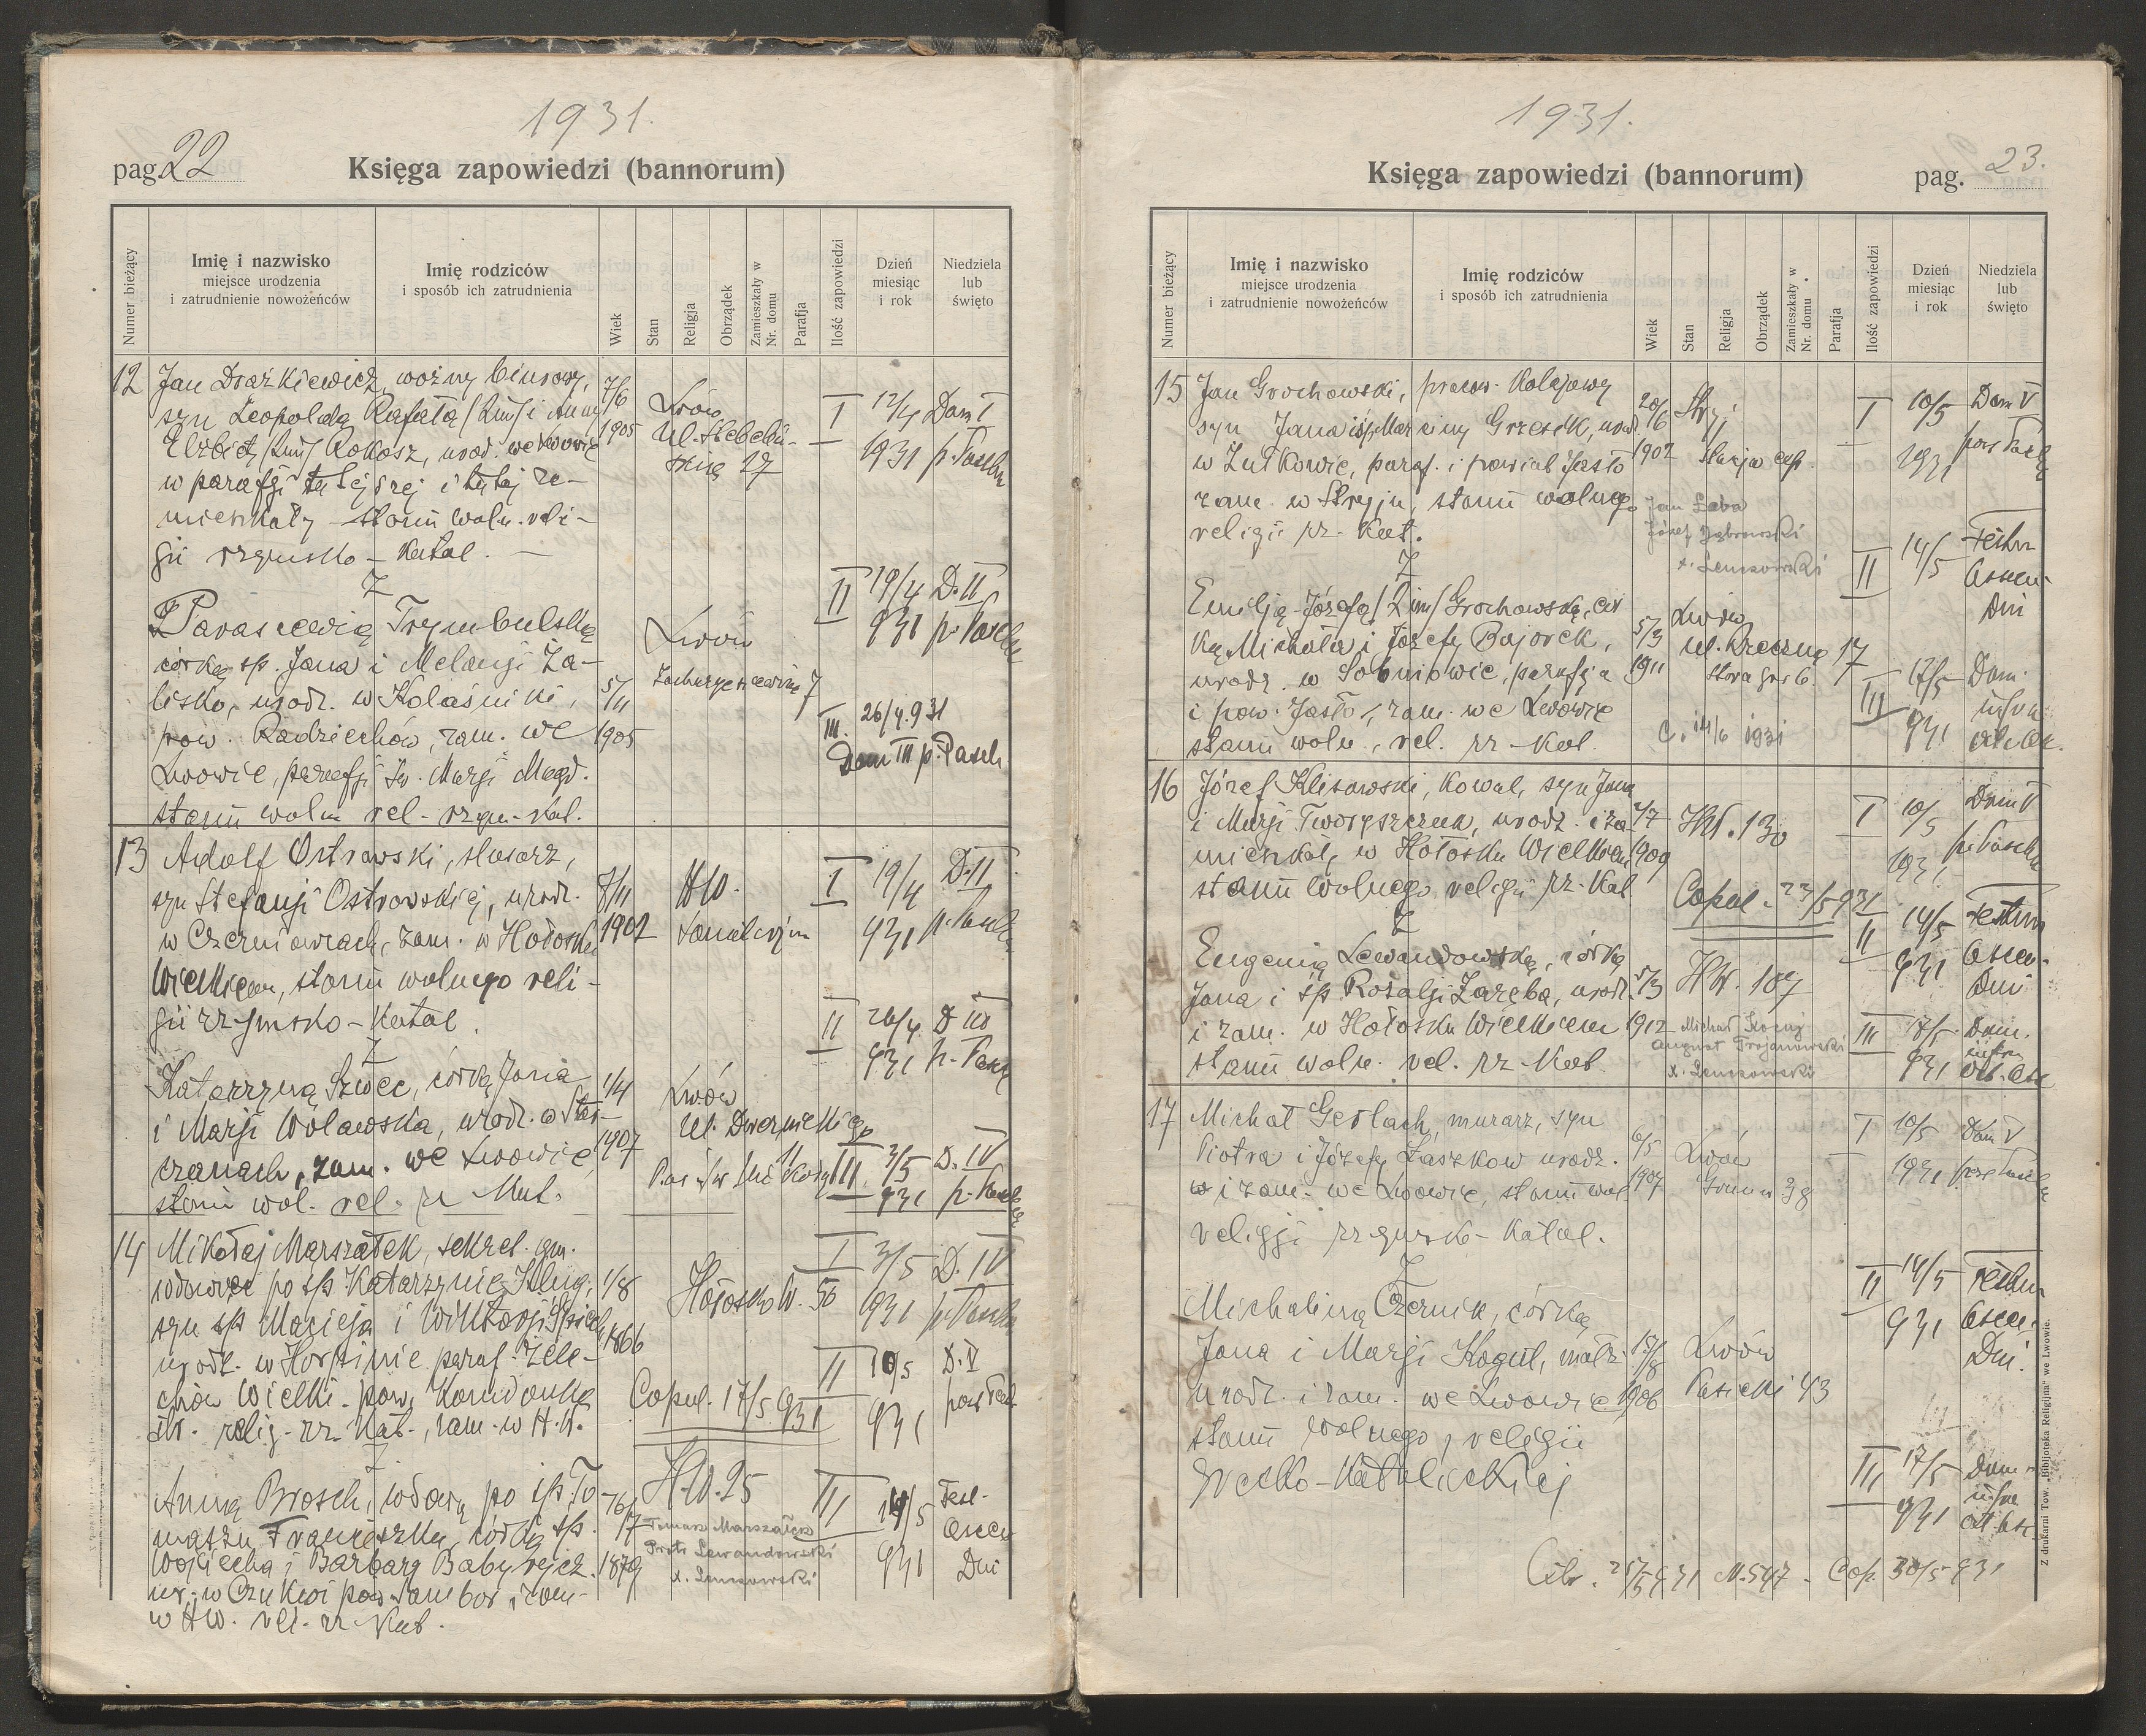 1931.
pag. 22
Księga zapowiedzi (bannorum)
Numer bieżący
Imię i nazwisko
miejsce urodzenia
i zatrudnienie nowożeńców
Imię rodziców
i sposób ich zatrudnienia
Wiek
Stan
Religja
Obrządek
Zamieszkały w
Nr. domu
Parafja
Ilość zapowiedzi
Dzień
miesiąc
i rok
Niedziela
lub
święto
12 Jan Drażkiewicz, woźny biurowy, 7/6
syn Leopolda Rafała i Anny 1905 Lwów I 12/4 Dom I
Elżbiety Rokosz, urod. we Lwowie 1931 p. Pasch
w parafji tutejszej i tutaj za-
mieszkały - stanu woln. reli-
gii rzymsko-katol.
Z II 19/4 D. II
Parascewią Trymbulską Lwów 931 p. Pasch
córką sp. Jana i Melanji Za-
lisko, urodz. w Kolaśniki, 5/11 7
pow. Radziechów, zam. we 1905 III. 26/4.931
Lwowie, parafji Św. Marji Magd. Dom III p. Pasch
stanu woln. rel. rzym-kat.
13 Adolf Ostrowski, ślusarz,
syn Stefanji Ostrowskiej, urodz. 7/11 HW. I 19/4 D. II
w Czerniowcach, zam. w Hołosku 1902 931 p. Pasch
Wielkiem, stanu wolnego reli-
gii rzymsko-katol.
II 26/4 D III
Z 931 p. Pasch
Katarzyną Szwec, córką Jana 1/4 Lwów
i Marji Wolawska, urodz. w Star- ul. Dwernickiego
czanach, zam. we Lwowie, 1907 11 III 3/5 D. IV
stanu wol. rel. rz kat. 931 p. Pasch
14 Mikołaj Marszałek, sekret. gm. I 3/5 D. IV
wdowiec po sp Katarzynie Kling, 1/8 Hołosko W. 56 931 p. Pasch
syn sp Macieja i Wiktorji 1866
urodz. w Horpinie paraf. Żele- II 10/5 D. V
chów Wielki. pow. Kamionka Copul. 17/5 931 931 post Pas.
Str. relig. rz. Kat., zam. w H. W.
Z
Anną Brosch, wdową po sp. To- 16/7 H.W. 25 III 14/5 Fest.
maszu Franciszku, córką sp. Tomasz Marszałek Ascen
Wojciecha i Barbary Babyrejcz. 1879 Piotr Lewandowski 931 Dni
ur. w Czukwi pow. Sambor, zam.
w HW. rel. rz Kat.
1931.
Księga zapowiedzi (bannorum)
pag. 23.
Numer bieżący
Imię i nazwisko
miejsce urodzenia
i zatrudnienie nowożeńców
Imię rodziców
i sposób ich zatrudnienia
Wiek
Stan
Religja
Obrządek
Zamieszkały w
Nr. domu
Parafja
Ilość zapowiedzi
Dzień
miesiąc
i rok
Niedziela
lub
święto
15 Jan Grochowski, pracow. Kolejowy 20/6 Stryj I 10/5 Dom V
syn Jana i Marcyny Grzesik, urod. 1931 post Pasch
w Żutkowie, paraf. i powiat Jasło 1902
zam. w Stryju, stanu wolnego Jan Łaba
religii rz-kat. Józef Dąbrowski
Z II 14/5 Festum Ascen Dni
Emilją-Józefą Grochowską, cór- Lwów
ką Michała i Józefy Bajorek, 5/3 ul. Rzeczna 17
urodz. w Sobniowie, parafja 1911
i pow. Jasło, zam. we Lwowie III 17/5 Dom. infra oct. Asc.
stanu woln., rel. rz-kat. C. 14/6 1931 931
16 Józef Klisowski, Kowal, syn Jana I 10/5 Dom V
i Marji Tworyszczuk, urodz. i za- 2/7 HW. 130
mieszkały w Hołosku Wielkiem 1909 931 p. Pasch
stanu wolnego religii rz-kat.
Z Copul. 23/5 931 II 14/5 Festum
Eugenią Lewandowską, córką 931 Ascen.
Jana i sp Rozalji Zaręba, urodz. 5/3 HW. 107 Dni
i zam. w Hołosku Wielkiem 1912 Michał III 17/5 Dom.
stanu woln. rel. rz-Kat. August Trojanowski 931 infra oct. Asc
17 Michał Gerlach, murarz, syn I 10/5 Dom V
Piotra i Józefy Łaszkow urodz. 6/5 Lwów
w i zam. we Lwowie, stanu wol. 1907 38 1931 post Pasch
religji rzymsko-katol.
Z II 14/5 Festum
Michaliną Czernik, córką 931 Ascen.
Jana i Marji Kogut, małż. 15/8 Lwów Dni.
urodz. i zam. we Lwowie 1906 Pasieki 43
stanu wolnego, religii
grecko-katolickiej III 17/5 Dom
931 infra oct. Asc.
25/5 931 N. 547 - Cop. 30/5 931
Z drukarni Tow. „Bibljoteka Religijna" we Lwowie.